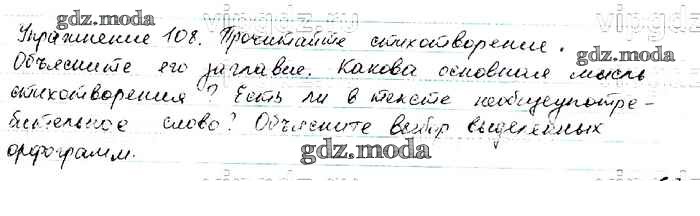 gdz.moda
vipgdz.ru
vipgdz
Упражнение 108. Прочитайте стихотворение.
gdz.moda
Объясните его заглавие. Какова основная мысль
стихотворения? Есть ли в тексте необщеупотре-
бительное слово? Объясните выбор выделенных
gdz.moda
орфограмм.
gdz.moda